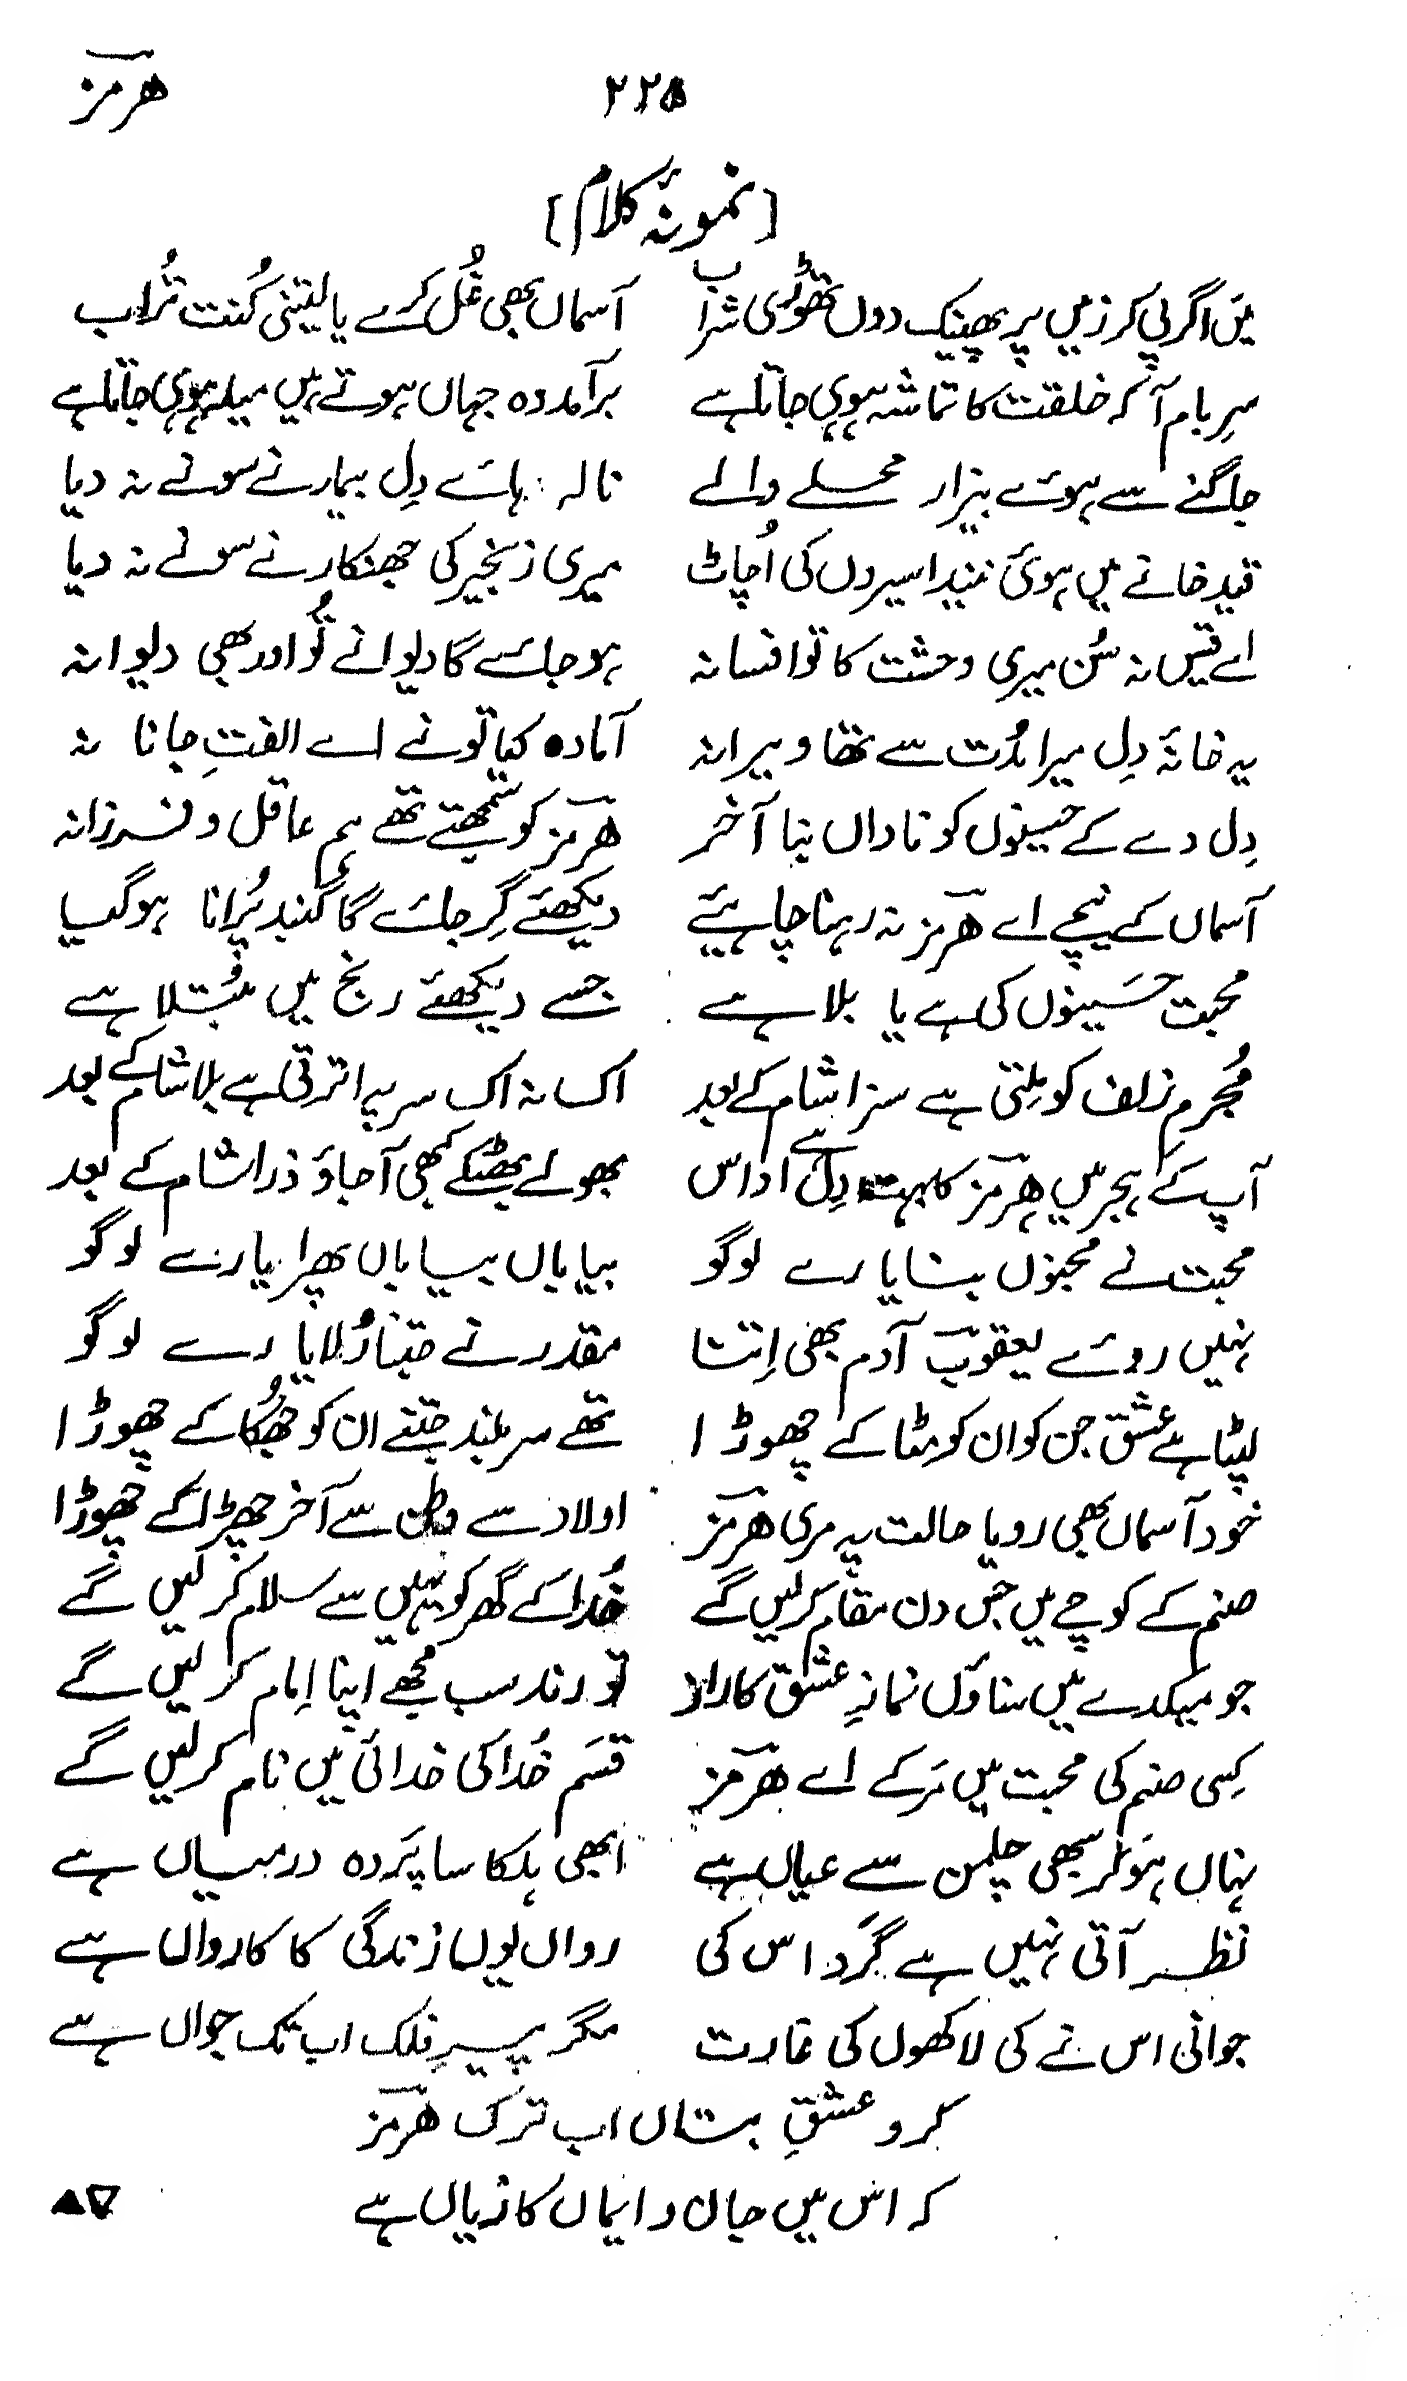 ھرمز ۲۲۵
[نمونۂ کلام]
میں اگر پی کر زمیں پر پھینک دوں تھوڑی شراب آسماں بھی غُل کرے یا لیتنی کُنت تُراب
سرِ بام آ کر خلقت کا تماشہ ہو ہی جاتا ہے برآمد وہ جہاں ہوتے ہیں میلہ ہو ہی جاتا ہے
جاگنے سے ہوئے بیزار محلے والے نالہ ہائے دِل بیمار نے سونے نہ دیا
قید خانے میں ہوئی نیند اسیروں کی اُچاٹ میری زنجیر کی جھنکار نے سونے نہ دیا
اے قیس نہ سُن میری وحشت کا تو افسانہ ہو جائے گا دیوانے تُو اور بھی دیوانہ
یہ خانۂ دِل میرا مُدت سے تھا ویرانہ آمادہ کیا تو نے اے الفتِ جانا نہ
دِل دے کے حسینوں کو ناداں بنا آخر ھرمز کو سمجھتے تھے ہم عاقل و فرزانہ
آسماں کے نیچے اے ھرمز نہ رہنا چاہیئے دیکھئے گِر جائے گا گنبد پُرانا ہو گیا
محبت حَسینوں کی ہے یا بلا ہے جسے دیکھئے رنج میں مُبتلا ہے
مُجرمِ زلف کو مِلتی ہے سزا شام کے بعد اک نہ اک سر پہ اترتی ہے بلا شام کے بعد
آپ کے ہجر میں ھرمز کا بہت دِل ہے اداس بھولے بھٹکے کبھی آ جاؤ ذرا شام کے بعد
محبت نے مجنوں بنایا رے لوگو بیاباں بیاباں پھرایا رے لوگو
نہیں روئے یعقوب آدم بھی اِتنا مقدر نے جتنا رُلایا رے لوگو
لپٹا ہے عشق جن کو ان کو مِٹا کے چھوڑا تھے سر بلند جتنے ان کو جُھکا کے چھوڑا
خود آسماں بھی رویا حالت پہ مری ھرمز اولاد سے وطن سے آخر چھڑا کے چھوڑا
صنم کے کوچے میں جس دن مقام کر لیں گے خُدا کے گھر کو یہیں سے سلام کر لیں گے
جو میکدے میں بتاؤں نمازِ عشق کا راز تو رند سب مُجھے اپنا اِمام کر لیں گے
کِسی صنم کی محبت میں مَر کے اے ھرمز قسَم خُدا کی خدائی میں نام کر لیں گے
نہاں ہو کر بھی چلمن سے عیاں ہے ابھی ہلکا سا پَردہ درمیاں ہے
نظر آتی نہیں ہے گَرد اس کی رواں یوں زندگی کا کارواں ہے
جوانی اس نے کی لاکھوں کی غارت مگر پیرِ فلک اب تک جواں ہے
کرو عشقِ بتاں اب ترک ھرمز
کہ اس میں جان و ایماں کا زیاں ہے